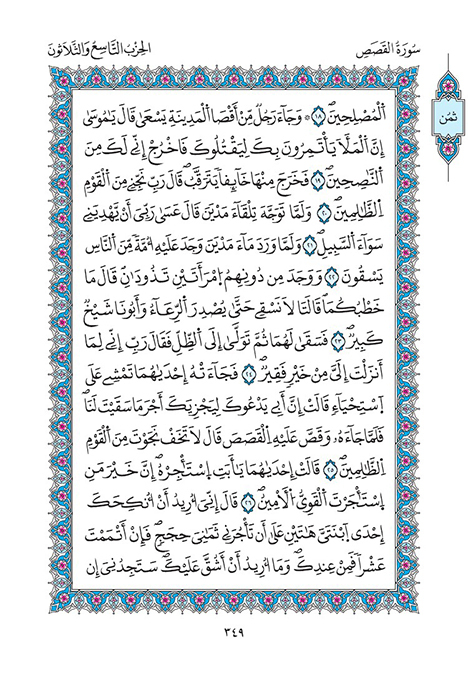 سُورَةُ القَصَصِ
الحِزْبُ التَّاسِعُ وَالثَّلَاثُونَ
ثُمُن
اَ۬لْمُصْلِحِينَۖ ١٨ ۞ وَجَآءَ رَجُلٞ مِّنْ أَقْصَا اَ۬لْمَدِينَةِ يَسْعَىٰ قَالَ يَٰمُوسَىٰٓ
إِنَّ اَ۬لْمَلَأَ يَأْتَمِرُونَ بِكَ لِيَقْتُلُوكَ فَاخْرُجِ اِنِّے لَكَ مِنَ
اَ۬لنَّٰصِحِينَۖ ١٩ فَخَرَجَ مِنْهَا خَآئِفاٗ يَتَرَقَّبُۖ قَالَ رَبِّ نَجِّنِے مِنَ اَ۬لْقَوْمِ
اِ۬لظَّٰلِمِينَۖ ٢٠ وَلَمَّا تَوَجَّهَ تِلْقَآءَ مَدْيَنَ قَالَ عَسَىٰ رَبِّيَ أَنْ يَّهْدِيَنِے
سَوَآءَ اَ۬لسَّبِيلِۖ ٢١ وَلَمَّا وَرَدَ مَآءَ مَدْيَنَ وَجَدَ عَلَيْهِ أُمَّةٗ مِّنَ اَ۬لنَّاسِ
يَسْقُونَۖ ٢٢ وَوَجَدَ مِن دُونِهِمُ اُ۪مْرَأَتَيْنِ تَذُودَٰنِ قَالَ مَا
خَطْبُكُمَا قَالَتَا لَا نَسْقِے حَتَّىٰ يُصْدِرَ اَ۬لرِّعَآءُ وَأَبُونَا شَيْخٞ
كَبِيرٞۖ ٢٣ فَسَقَىٰ لَهُمَا ثُمَّ تَوَلَّىٰٓ إِلَى اَ۬لظِّلِّ فَقَالَ رَبِّ إِنِّے لِمَآ
أَنزَلْتَ إِلَيَّ مِنْ خَيْرٖ فَقِيرٞۖ ٢٤ فَجَآءَتْهُ إِحْدَىٰهُمَا تَمْشِے عَلَى
اَ۪سْتِحْيَآءٖ قَالَتِ اِنَّ أَبِے يَدْعُوكَ لِيَجْزِيَكَ أَجْرَ مَا سَقَيْتَ لَنَاۖ
فَلَمَّا جَآءَهُۥ وَقَصَّ عَلَيْهِ اِ۬لْقَصَصَ قَالَ لَا تَخَفْ نَجَوْتَ مِنَ اَ۬لْقَوْمِ
اِ۬لظَّٰلِمِينَۖ ٢٥ قَالَتِ اِحْدَىٰهُمَا يَٰٓأَبَتِ اِ۪سْتَٰٔجِرْهُۖ إِنَّ خَيْرَ مَنِ
اِ۪سْتَٰٔجَرْتَ اَ۬لْقَوِيُّ اُ۬لَامِينُۖ ٢٦ قَالَ إِنِّيَ أُرِيدُ أَنُ ا۟نكِحَكَ
إِحْدَى اَ۪بْنَتَيَّ هَٰتَيْنِ عَلَىٰٓ أَن تَأْجُرَنِے ثَمَٰنِيَ حِجَجٖۖ فَإِنَ اَتْمَمْتَ
عَشْراٗ فَمِنْ عِندِكَۖ وَمَآ أُرِيدُ أَنَ اَشُقَّ عَلَيْكَۖ سَتَجِدُنِيَ إِن
٣٤٩